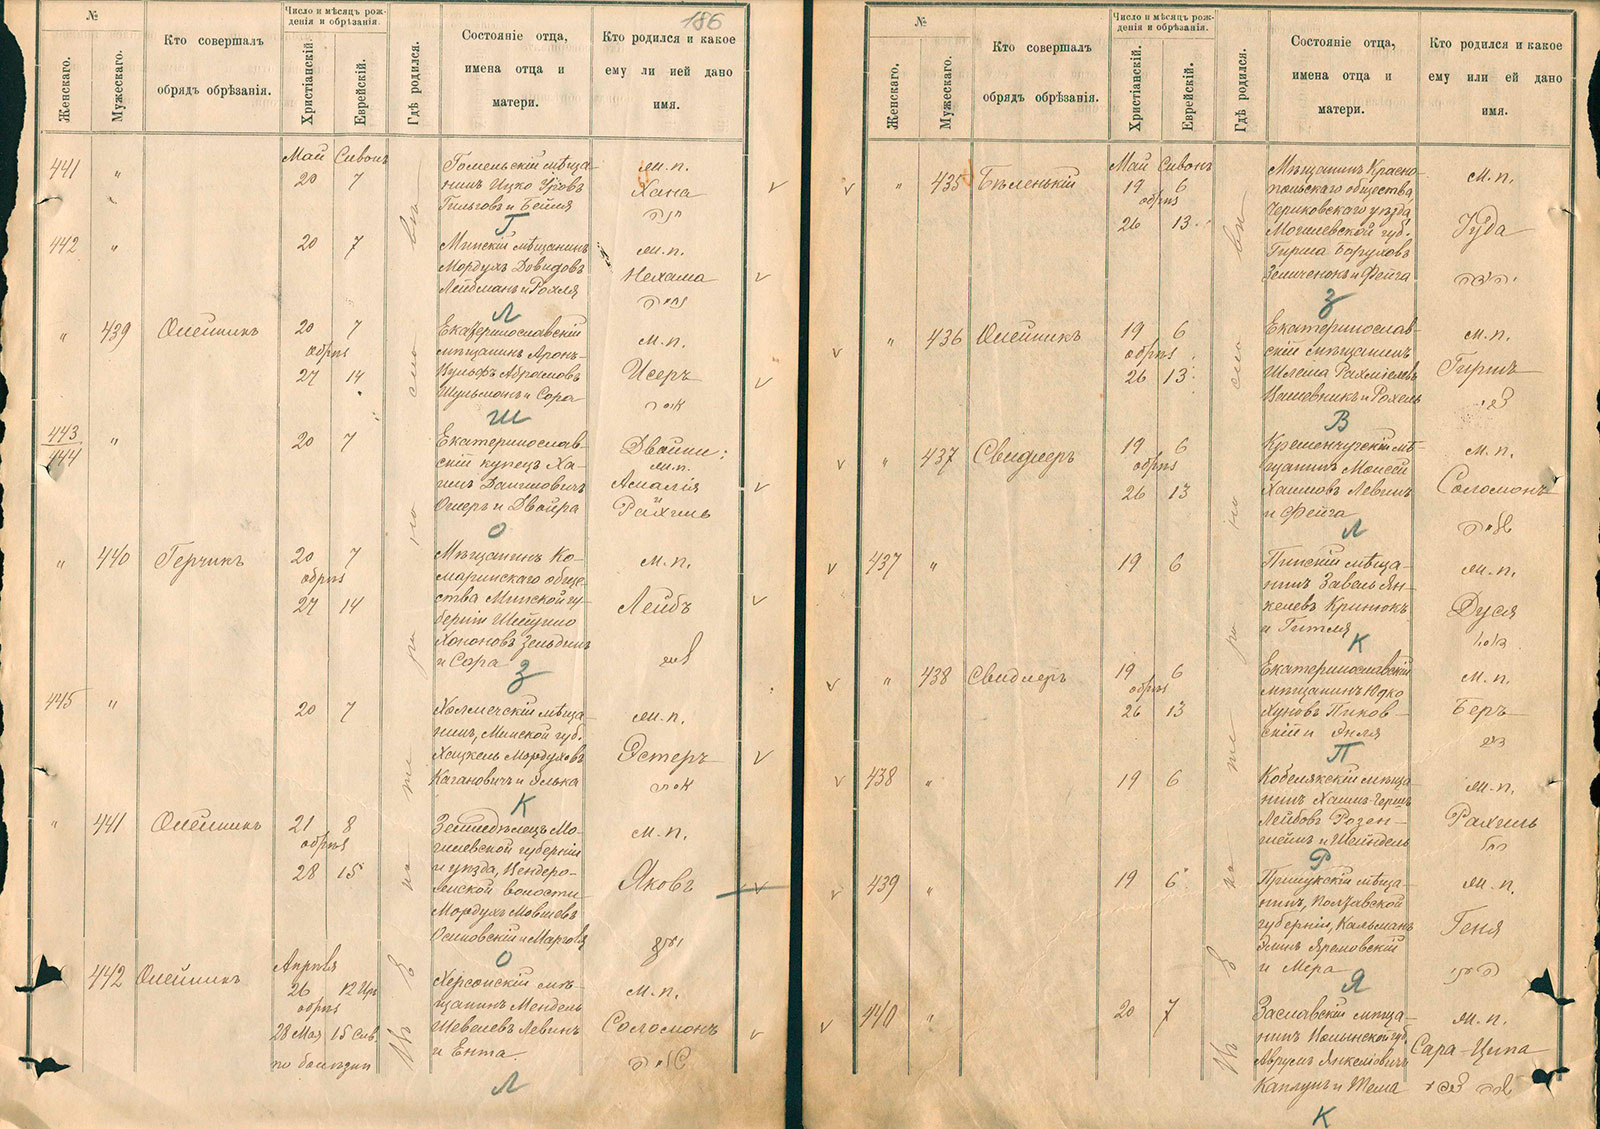 186
№
Женскаго.
Мужескаго.
Кто совершалъ
обрядъ обрѣзанія.
Число и мѣсяцъ рож-
денія и обрѣзанія.
Христіанскій.
Еврейскій.
Гдѣ родился.
Состояніе отца,
имена отца и
матери.
Кто родился и какое
ему ли ией дано
имя.
441
"
Май Сивонъ
20 7
Гомельскій мѣща-
нинъ Ицко
и Бейля
м. п.
Хана
Г
442
"
20 7
Минскій мѣщанинъ
Мордухъ Довидовъ
Лейбманъ и Рохля
м. п.
Нехама
Л
"
439
Олейникъ
20 7
обрѣз
27 14
Екатеринославскій
мѣщанинъ Аронъ-
Вульфъ Абрамовъ
Шульманъ и Сора
м. п.
Исеръ
Ш
443
444
"
20 7
Екатеринослав-
скій купецъ Ха-
имъ Даниловичъ
Ошеръ и Двойра
Двойни:
м. п.
Амалія
и
Рахиль
О
"
440
Герчикъ
20 7
обрѣз
27 14
Мѣщанинъ Ко-
маринскаго обще-
ства Минской гу-
берніи
Хононовъ Зельдинъ
и Сора
м. п.
Лейбъ
З
445
"
20 7
мѣща-
нинъ, Минской губ.
Хацкель Мордуховъ
Кагановичъ и Элька
м. п.
Эстеръ
К
"
441
Олейникъ
21 8
обрѣз
28 15
Земледѣлецъ Мо-
гилевской губерніи
и уѣзда,
волости
Мордухъ Мовшевъ
Осиновскій и
м. п.
Яковъ
О
442
Олейникъ
Апрѣля
26 12 Иръ
обрѣз
28 Мая 15 Сив.
по болѣзни
Херсонскій мѣ-
щанинъ Мендель
Шевелевъ Левинъ
и Ента
м. п.
Соломонъ
Л
№
Женскаго.
Мужескаго.
Кто совершалъ
обрядъ обрѣзанія.
Число и мѣсяцъ рож-
денія и обрѣзанія.
Христіанскій.
Еврейскій.
Гдѣ родился.
Состояніе отца,
имена отца и
матери.
Кто родился и какое
ему или ей дано
имя.
"
435
Бѣленькій
Май Сивонъ
19 6
обрѣз
26 13
Мѣщанинъ Красно-
польскаго общества
Чериковскаго уѣзда
Могилевской губ.
Гирша Боруховъ
Зеличенокъ и Фейга
м. п.
Іуда
З
"
436
Олейникъ
19 6
обрѣз
26 13
Екатеринослав-
скій мѣщанинъ
Шлема Рахміелевъ
Вашевникъ и Рохель
м. п.
Гиршъ
В
"
437
Свидлеръ
19 6
обрѣз
26 13
Кременчугскій мѣ-
щанинъ Моисей
Хаимовъ Левинъ
и Фейга
м. п.
Соломонъ
Л
437
"
19 6
Пинскій мѣща-
нинъ Завель Ян-
келевъ Кринюкъ
и Гитля
м. п.
Дуся
К
"
438
Свидлеръ
19 6
обрѣз
26 13
Екатеринославскій
мѣщанинъ Юдко
Хуновъ Пиков-
скій и Энля
м. п.
Беръ
П
438
"
19 6
Кобелякскій мѣща-
нинъ Хаимъ-Гершъ
Лейбовъ Розен-
и Шейндель
м. п.
Рахиль
Р
439
"
19 6
Прилукскій мѣща-
нинъ, Полтавской
губерніи, Кальманъ
Яремовскій
и Мера
м. п.
Геня
Я
440
"
20 7
Заславскій мѣща-
нинъ Волынской губ.
Аврумъ Янкелевичъ
Каплунъ и Шема
м. п.
Сара-Ципа
К